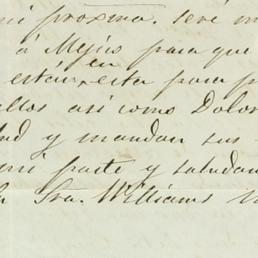 mi proxima. Seré m
á Mejico para que
en
estan esta para p
ellos asi como Dolor
ud y mandan sus
mi parte y saludan
la Sra. Williams